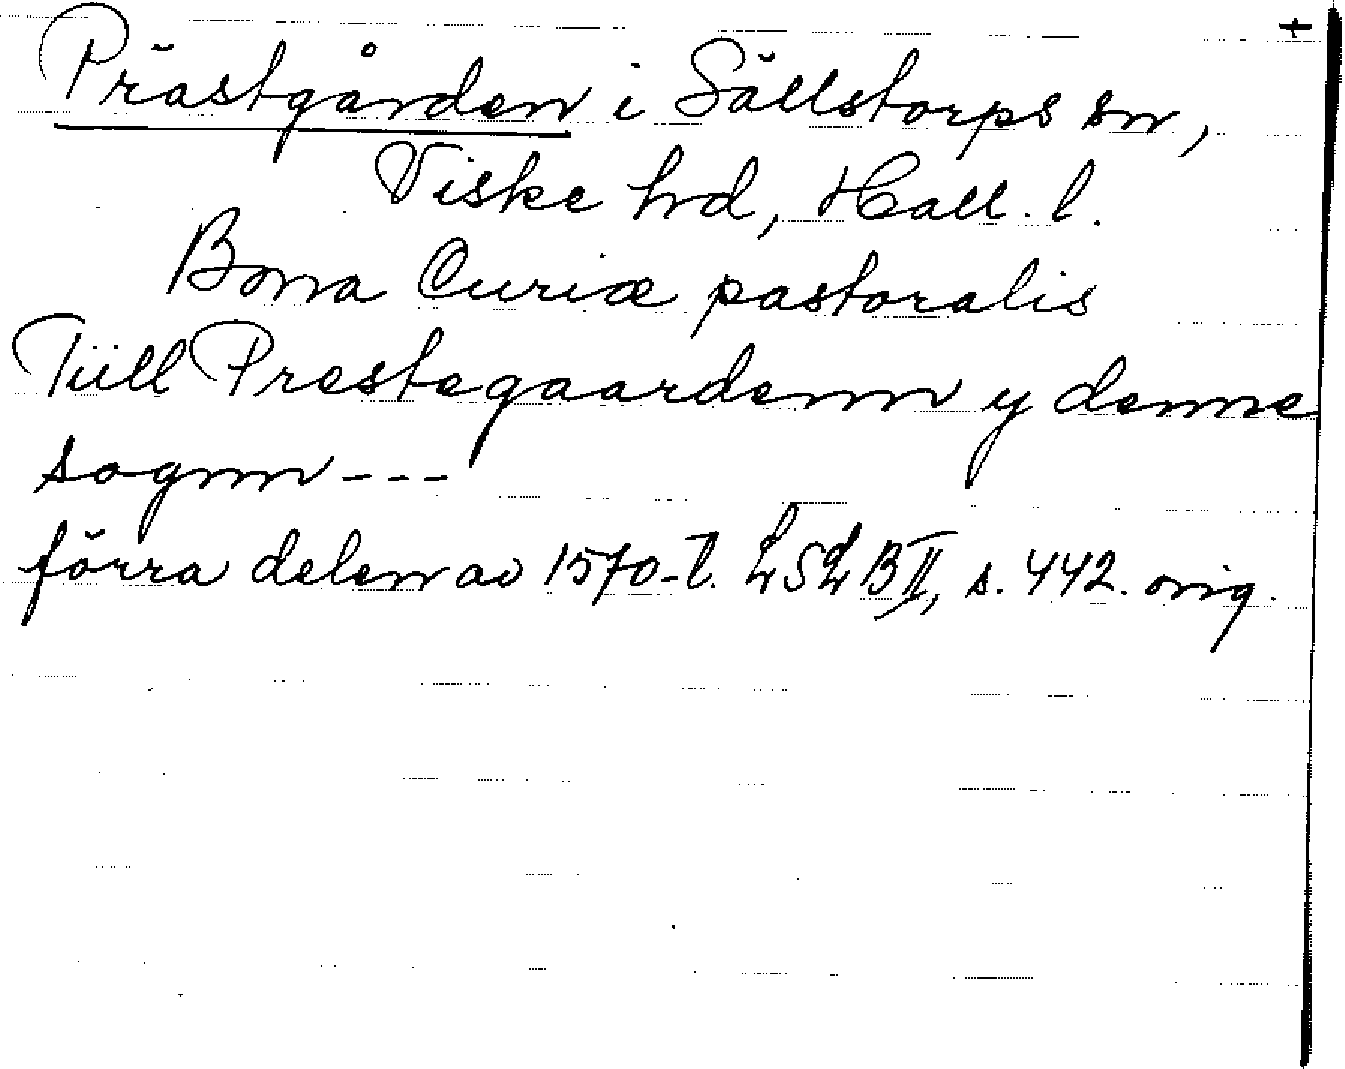 +
Prästgården i Sällstorps sn,
Viske hd, Hall. l.
Bona Curiæ pastoralis
Tiill Prestegaardenn y denne
sognn ---
förra delen av 1570-t. LSL B II, s. 442. orig.